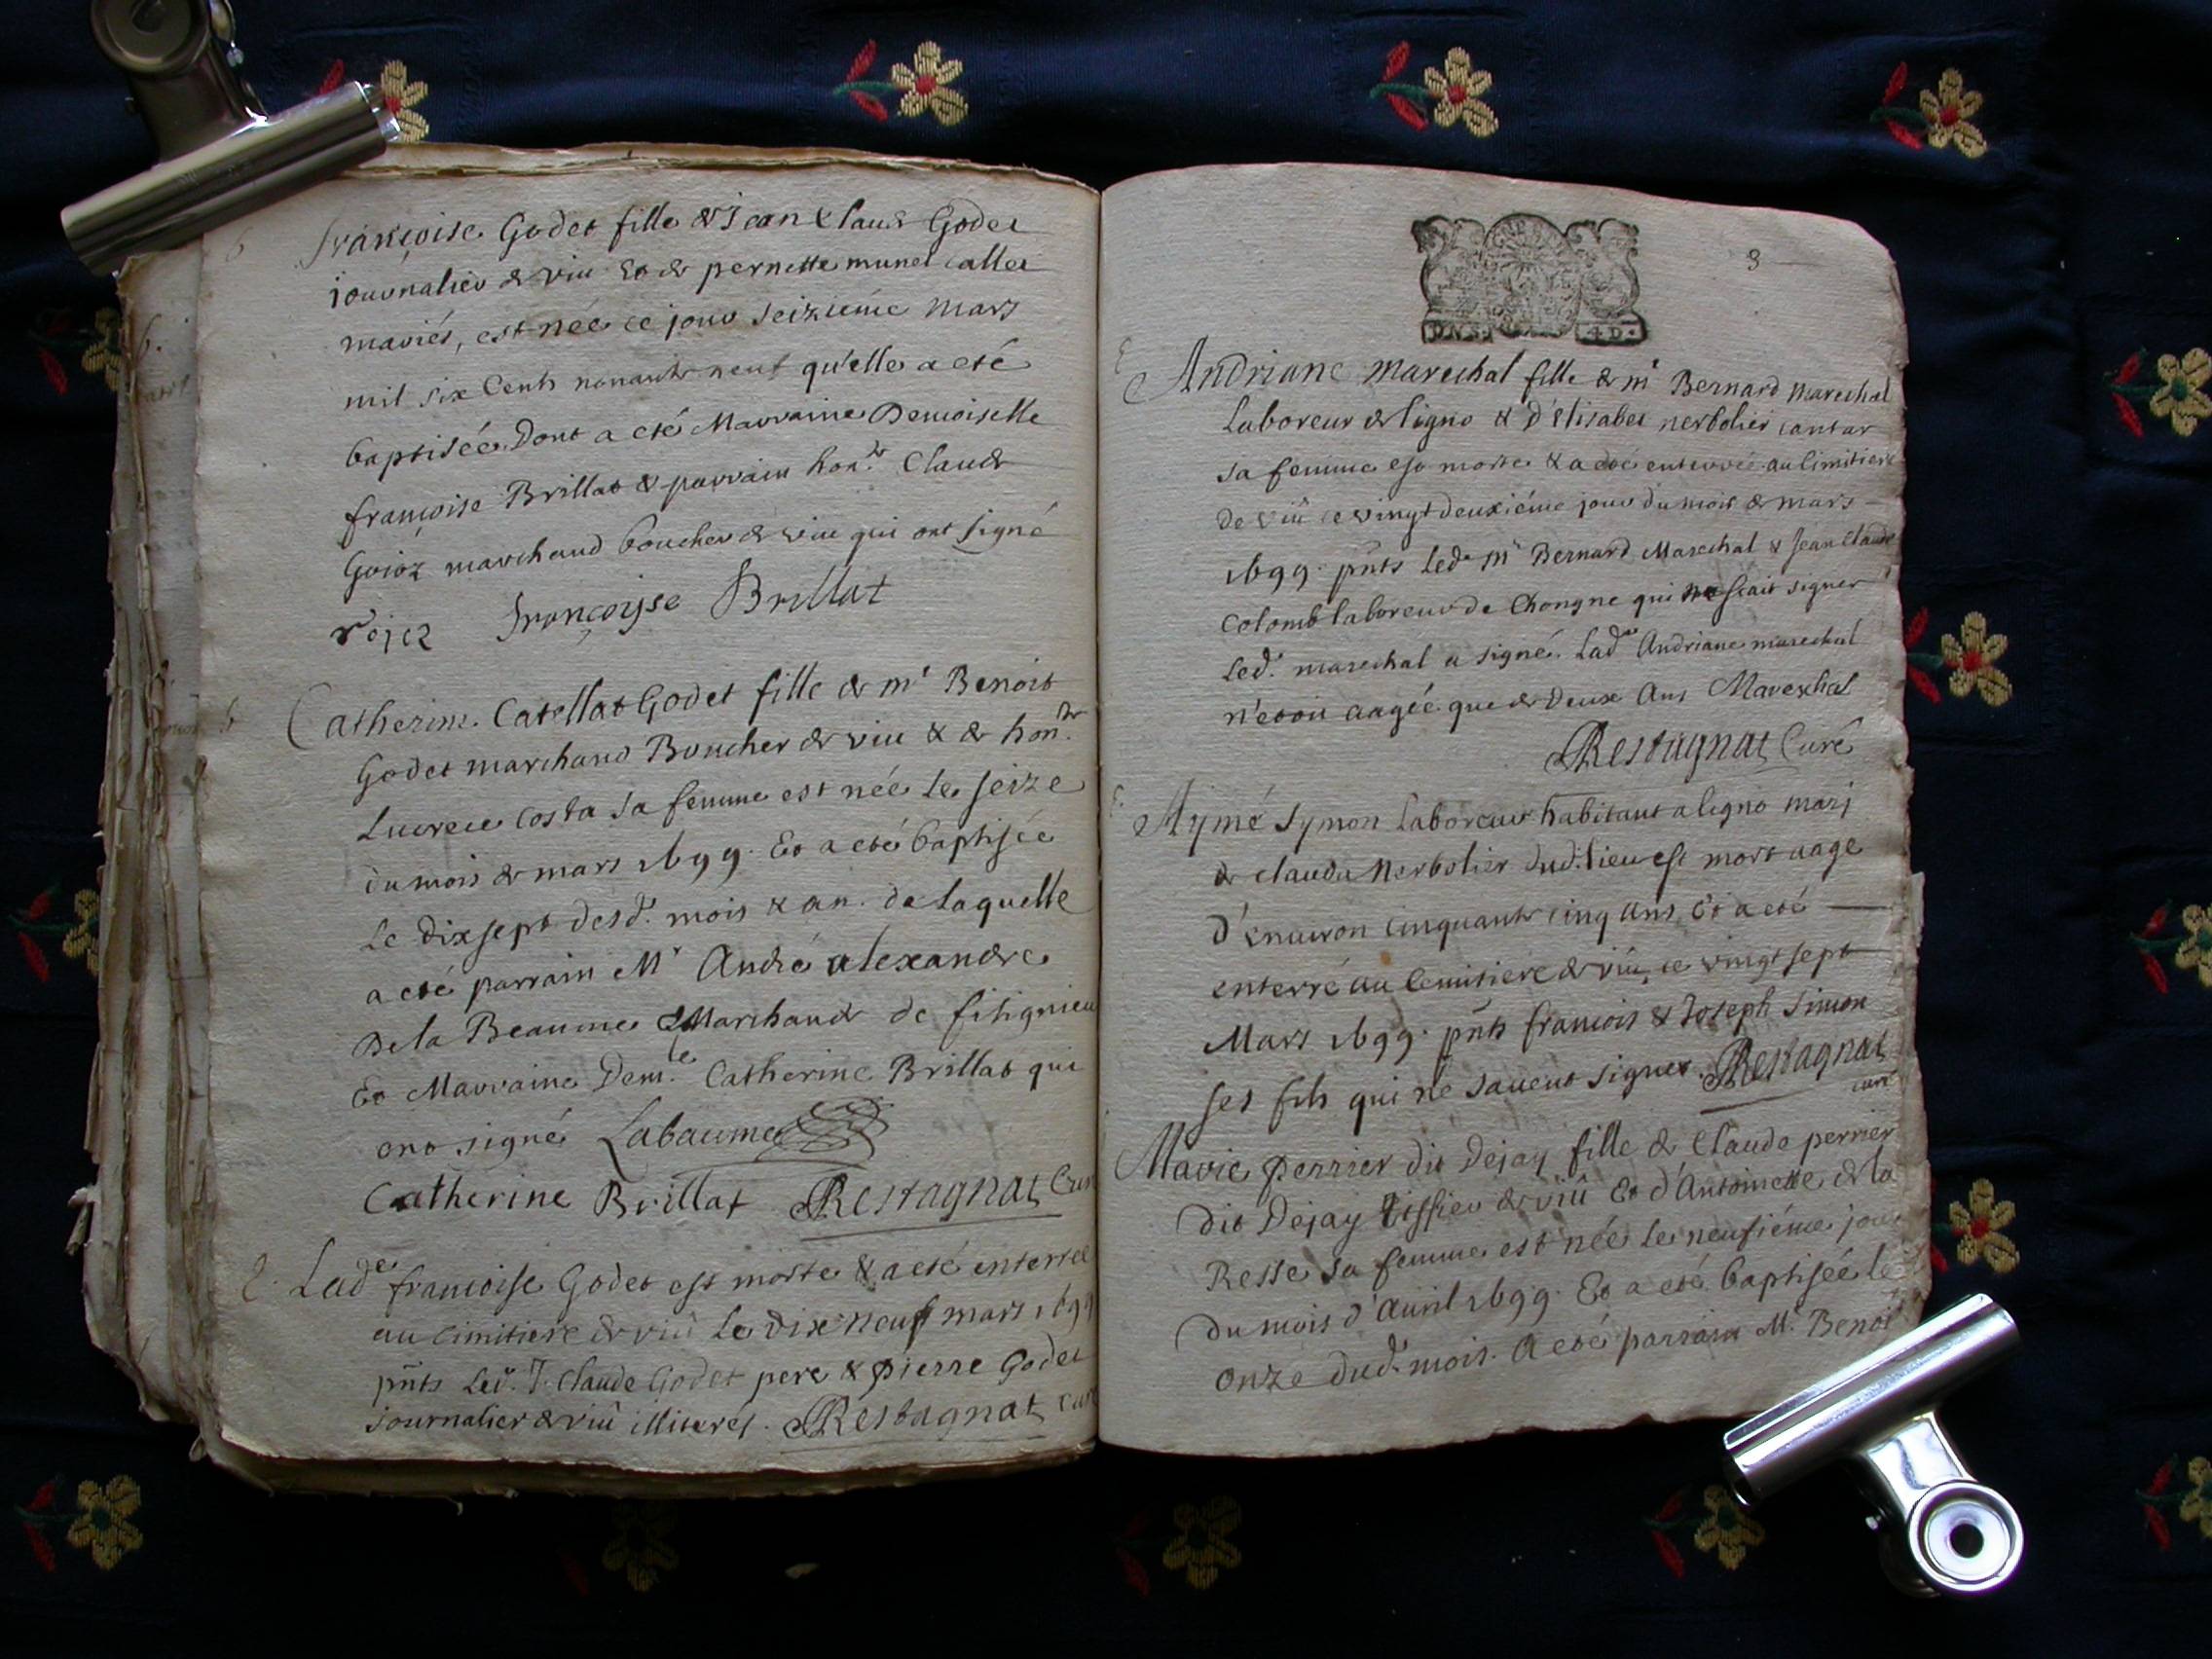 b
françoise Godet fille de Jean Claude Godet
journalier de viu Et de pernette munet allei
mariés, est née ce jour seizieme Mars
mil six Cents nonante neuf qu'elle a eté
baptisée Dont a eté Marraine Demoiselle
françoise Brillat & parrain hon.ble Claude
Goioz marchand boucher de viu qui ont signé
Françoyse Brillat
b
Catherine Catellat Godet fille de mr Benoit
Godet marchand Boucher de viu & de hon.ble
Lucrece Costa sa femme est née le seize
du mois de mars 1699. Et a eté baptisée
Le dix sept desd. mois & an. de laquelle
a eté parrain Mr André alexandre
De la Beaume Marchand de fitignieu
Et Marraine Dem.le Catherine Brillat qui
ont signé Labaume
Catherine Brillat Restagnat Curé
E. Lade françoise Godet est morte & a eté enterrée
au cimitiere de viû Le dix neuf mars 1699
pnts Led. J. Claude Godet pere & pierre Godet
journalier de viû illiterés. Restagnat curé
3
DNS. 4D.
E
Andriane Marechal fille de mr Bernard Marechal
Laboreur de ligno & d'Elisabet nerbolier cantar
sa femme est morte & a eté enterrée au cimitiere
de viû ce vingt deuxiéme jour du mois de mars
1699. pnts Led. mr Bernard Marechal & Jean Claude
Colomb laboreur de Chongne qui ne scait signer
Led. marechal a signé. Lade Andriane marechal
n'etoit aagée que de Deux Ans Mareschal
Restagnat Curé
E.
Aymé Symon Laboreur habitant a ligno marj
de clauda Nerbolier dud. lieu est mort aage
d'environ cinquante cinq ans, Et a eté
enterré au Cemitiere de viû, ce vingt sept
Mars 1699. pnts francois & Joseph Simon
ses fils qui ne savent signer. Restagnat
curé
Marie Perrier dit Dejay fille de Claude perrier
dit Dejay tissieu de viû Et d'Antoinette de la
Resse sa femme est née le neufiéme jour
du mois d'Avril 1699. Et a eté baptisée le
onze dud. mois. A eté parrain Mr. Benoit